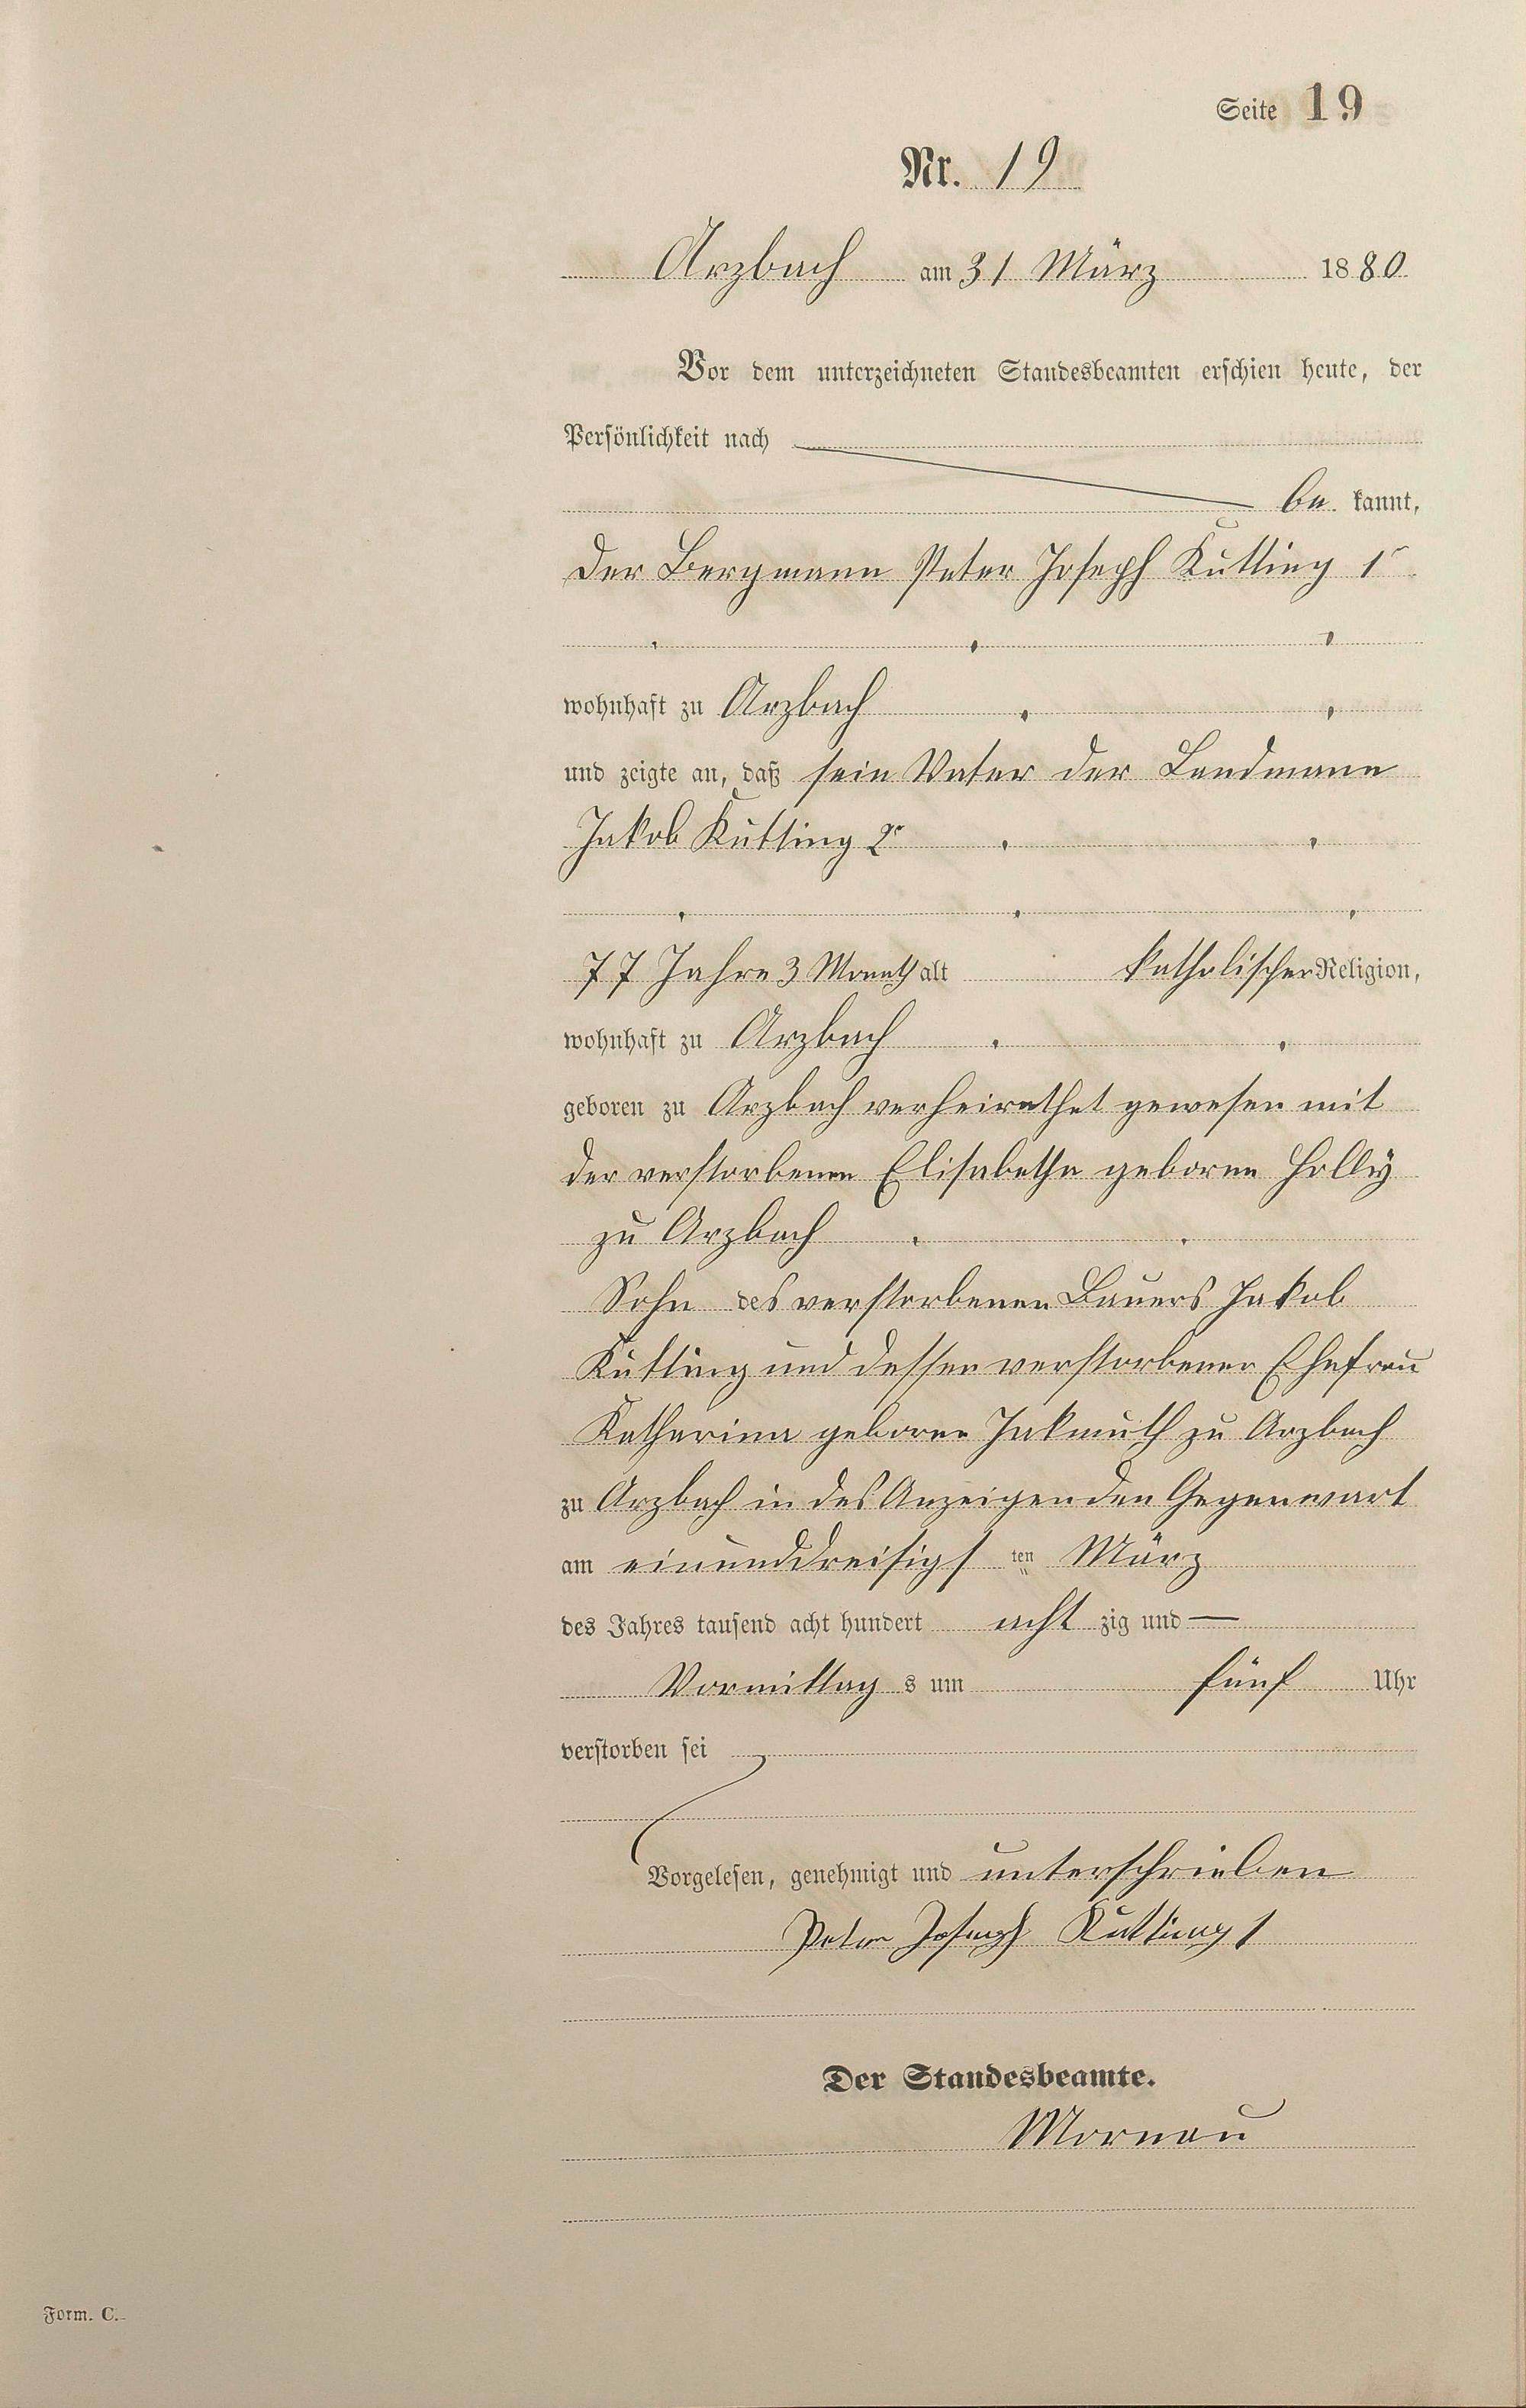 Seite 19
Nr. 19
Arzbach am 31 März 1880
Vor dem unterzeichneten Standesbeamten erschien heute, der
Persönlichkeit nach
be kannt,
der Bergmann Peter Joseph Kutting 1r
wohnhaft zu Arzbach
und zeigte an, daß sein Vater der Landmann
Jakob Kutting 2r
77 Jahre 3 Monath alt katholischer Religion,
wohnhaft zu Arzbach
geboren zu Arzbach verheirathet gewesen mit
der verstorbenen Elisabetha geborne Holly
zu Arzbach
Sohn des verstorbenen Bauers Jakob
Kutting und dessen verstorbener Ehefrau
Katharina geborne Jakmuth zu Arzbach
zu Arzbach in des Anzeigenden Gegenwart
am einunddreisigs ten März
des Jahres tausend acht hundert acht zig und —
Vormittag s um fünf Uhr
verstorben sei
Vorgelesen, genehmigt und unterschrieben
Peter Joseph Kutting 1
Der Standesbeamte.
Mornau
Form. C.